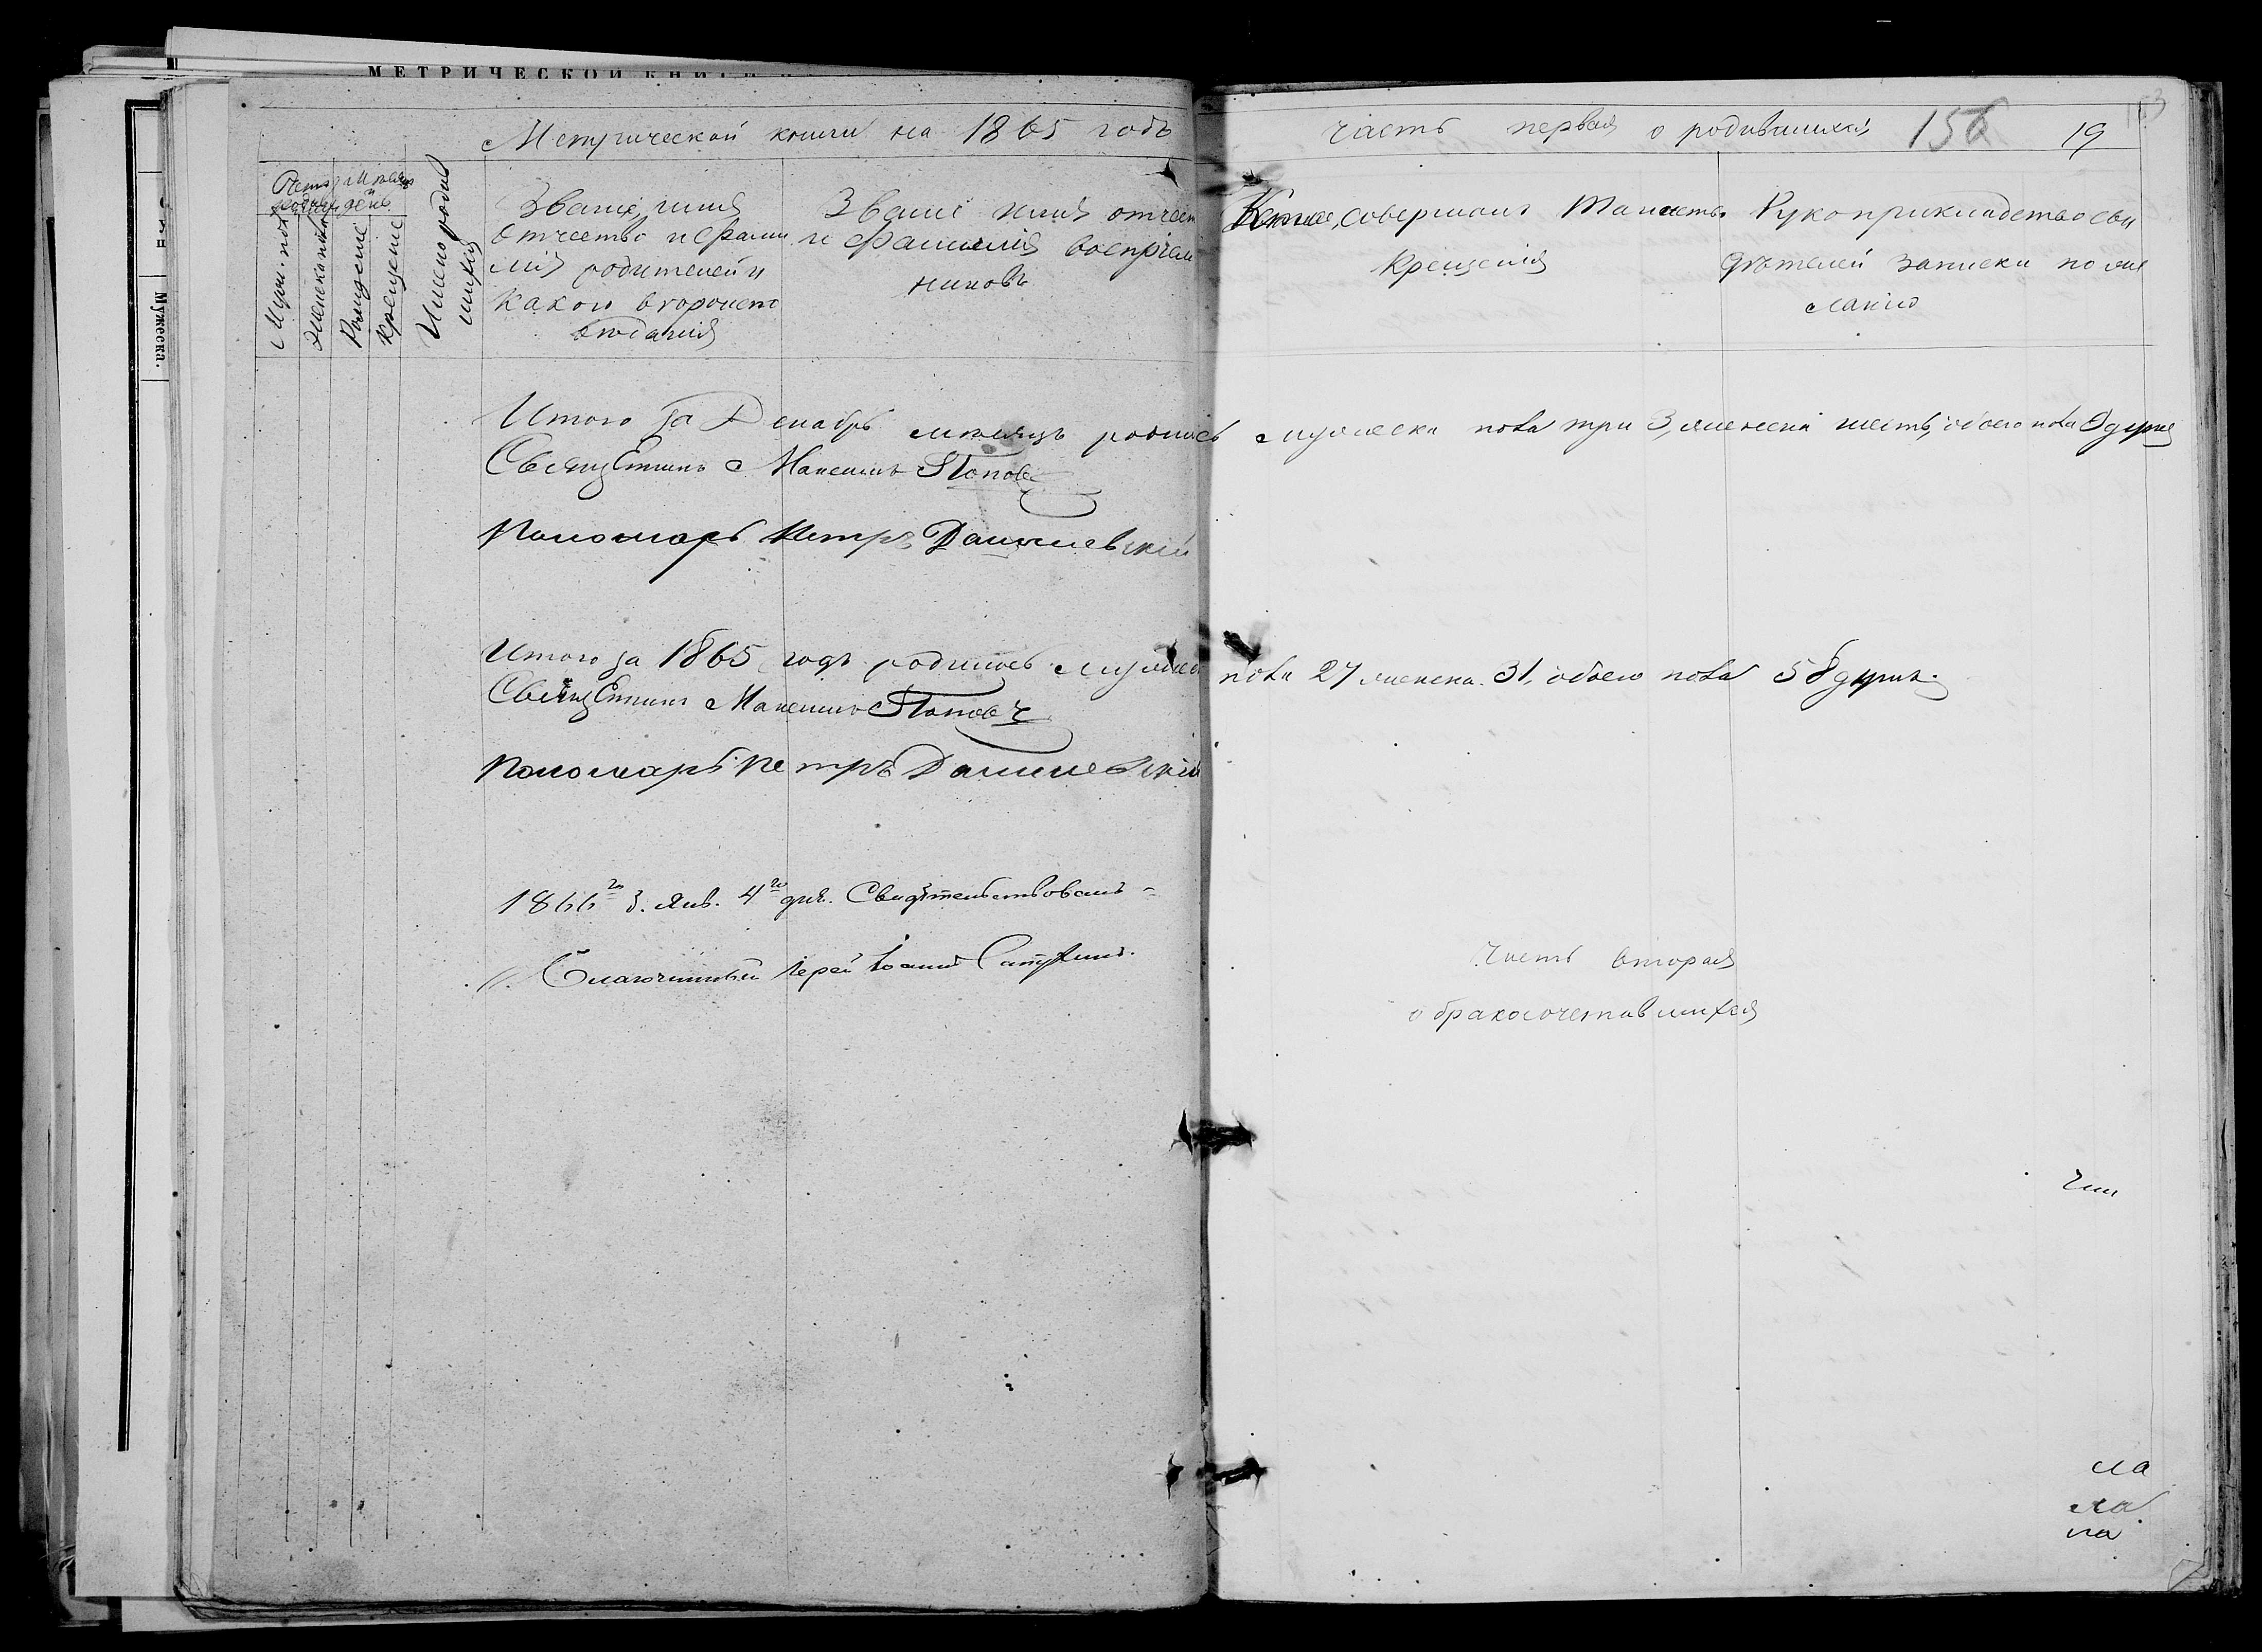 МЕТРИЧЕСКОЙ КНИГИ
Мужеска.
Метрической книги на 1865 годъ часть первая о родившихся 156 19
Счетъ родившихся
Мѣсяцъ и день
Муж. пол
Женска пола
Рожденіе
Крещеніе
Имена родив
шихся
Званіе, имя
отчество и фами
лія родителей и
какого вѣроиспо
вѣданія
Званіе имя отчест
и фамилія воспріем
никовъ
Кѣмъ совершалъ Таинство
Крещенія
Рукоприкладство сви
дѣтелей записки по же
ланію
Итого за Декабрь мѣсяцъ родилось мужеска пола три 3, женска шесть, обоего пола 9 душъ
Священникъ Максимъ Попов
Пономарь Петръ Данилевскій
Итого за 1865 годъ родилось мужеска пола 27 женска 31, обоего пола 58 душъ.
Священникъ Максимъ Попов
Пономарь Петръ Данилевскій
1866го г. Янв. 4го дня. Свидѣтельствовалъ
Благочинный Іерей Іоаннъ
Часть вторая
о бракосочетавшихся
ла
ла
ла